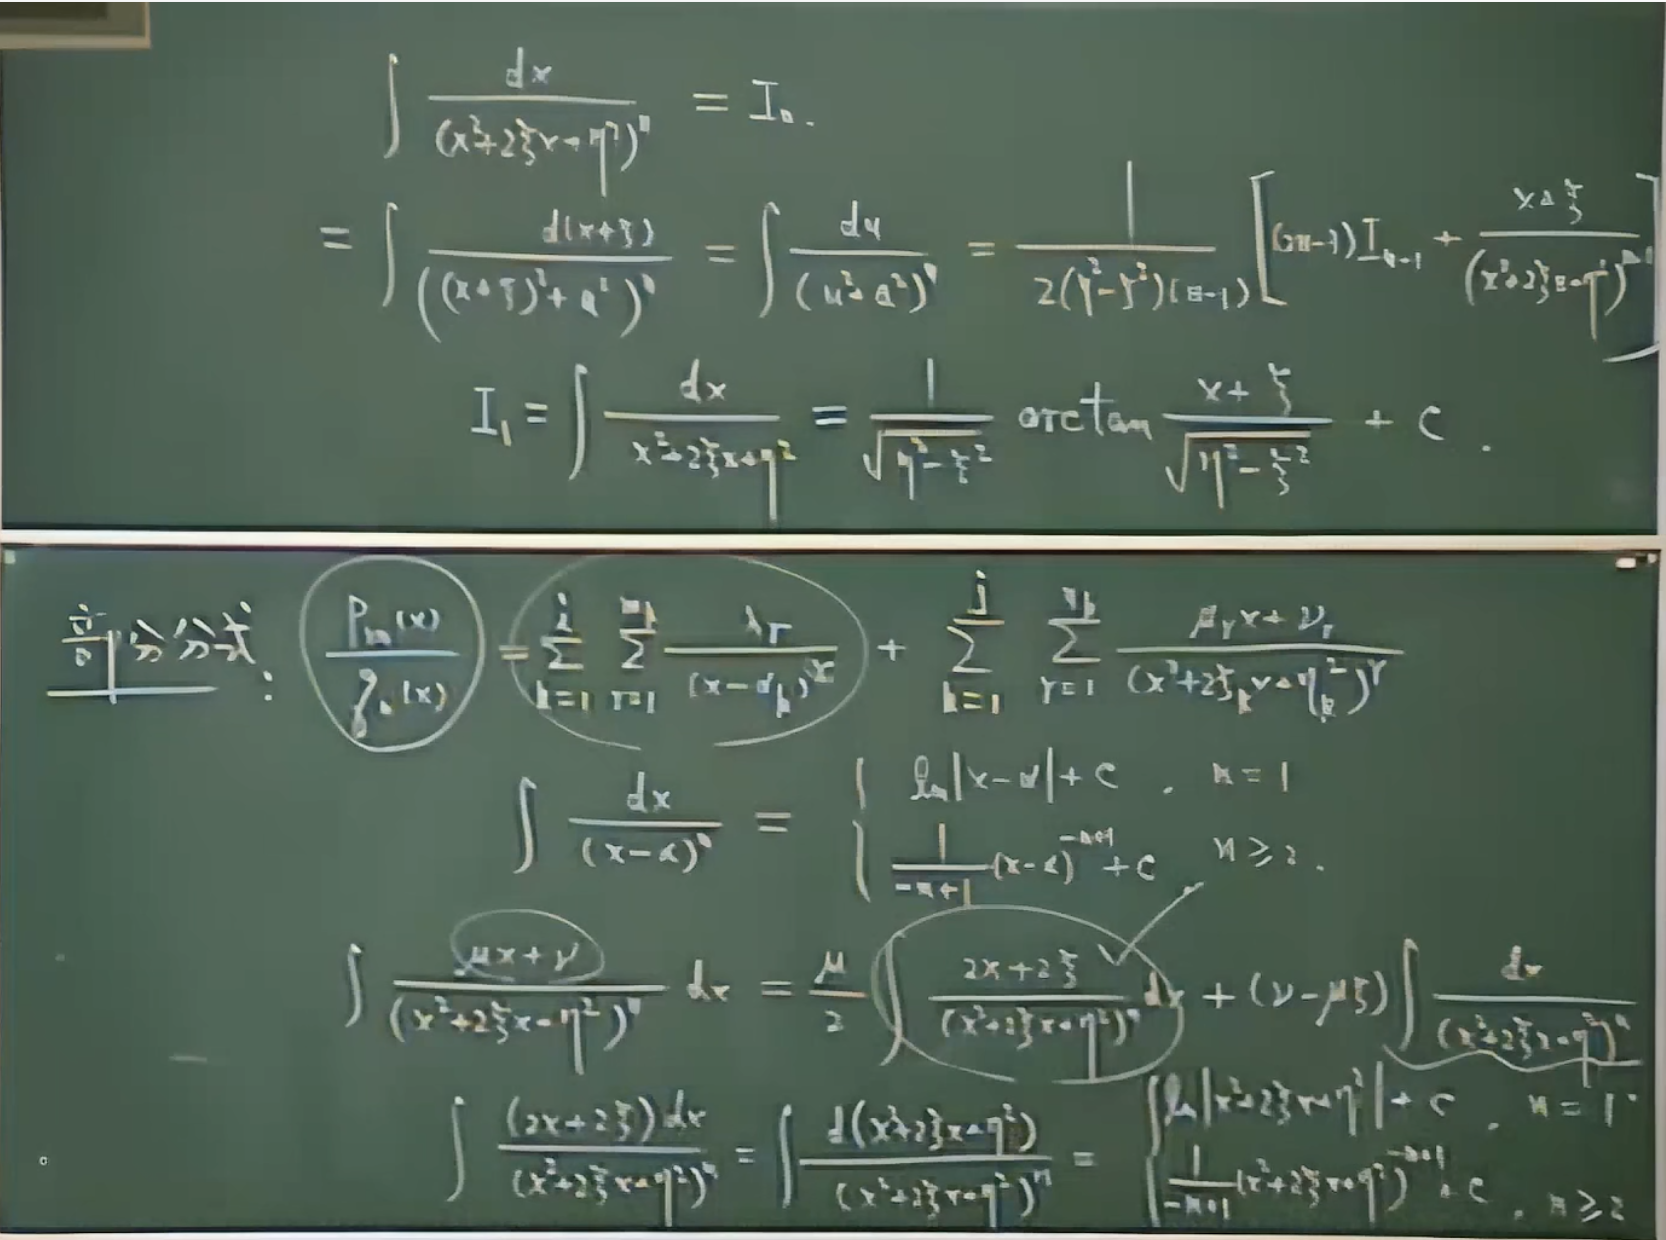 ∫ dx/(x²+2ξx+η²)ⁿ = Iₙ.
= ∫ d(x+ξ)/((x+ξ)²+a²)ⁿ = ∫ du/(u²+a²)ⁿ = 1/(2(η²-ξ²)(n-1)) [(2n-3)Iₙ₋₁ + (x+ξ)/(x²+2ξx+η²)ⁿ⁻¹]
I₁ = ∫ dx/(x²+2ξx+η²) = 1/√(η²-ξ²) arctan (x+ξ)/√(η²-ξ²) + C.
部分分式: pₘ(x)/qₙ(x) = Σ_{k=1}^{i} Σ_{r=1}^{mₖ} λᵣ/(x-αₖ)ʳ + Σ_{k=1}^{j} Σ_{r=1}^{nₖ} (μᵣx+νᵣ)/(x²+2ξₖx+ηₖ²)ʳ
∫ dx/(x-α)ⁿ = { ln|x-α|+C, n=1
1/(-n+1) (x-α)⁻ⁿ⁺¹+C, n≥2.
∫ (μx+ν)/(x²+2ξx+η²)ⁿ dx = μ/2 ∫ (2x+2ξ)/(x²+2ξx+η²)ⁿ dx + (ν-μξ) ∫ dx/(x²+2ξx+η²)ⁿ
∫ (2x+2ξ)dx/(x²+2ξx+η²)ⁿ = ∫ d(x²+2ξx+η²)/(x²+2ξx+η²)ⁿ = { ln|x²+2ξx+η²|+C, n=1.
1/(-n+1) (x²+2ξx+η²)⁻ⁿ⁺¹+C, n≥2